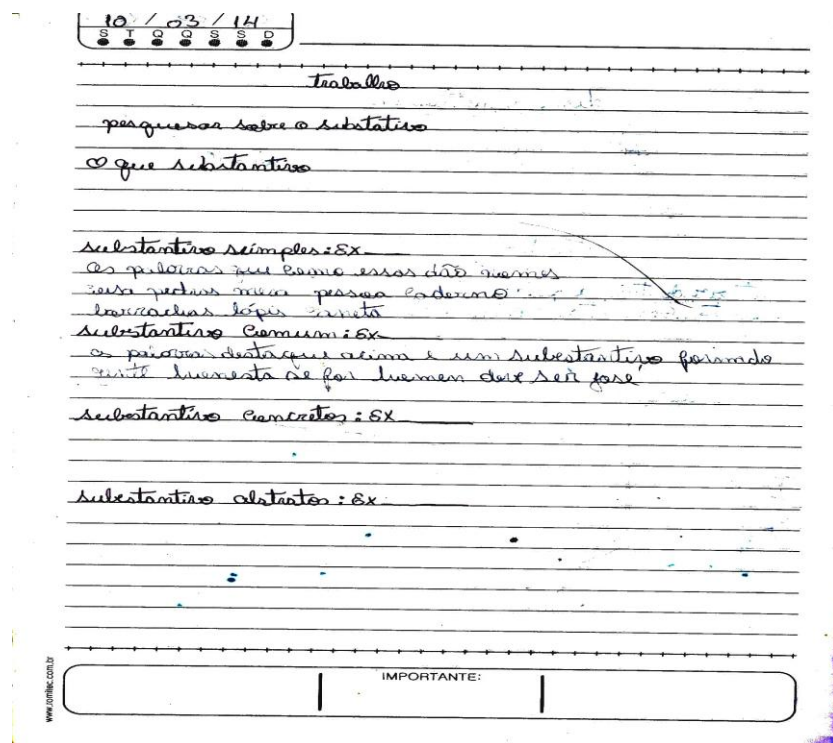 10 / 03 / 14
S T Q Q S S D
traballho
pesquesar sobre o substativo
O que substantivo
substantivo seimples: Ex
as que como essas dão nomes
pedras mesa pessoa caderno
borrachas lápis caneta
substantivo Comum: Ex
os destaque acima e um subestantivo formado
se for huemen deve ser jose
subestantivo Concretos: Ex
subestantivo abstratos: Ex
IMPORTANTE:
www.romitec.com.br